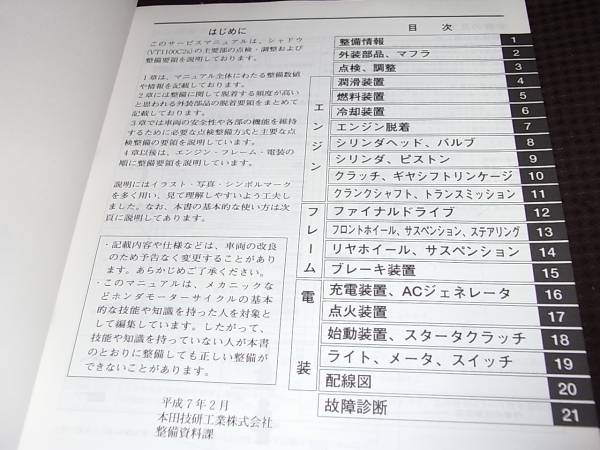 はじめに
このサービスマニュアルは、シャドウ
(VT1100C2s)の主要部の点検・調整および
整備要領を説明しております。
1章は、マニュアル全体にわたる整備数値
や情報を記載しております。
2章には整備に関して脱着する頻度が高い
と思われる外装部品の脱着要領をまとめて
記載しております。
3章では車両の安全性や各部の機能を維持
するために必要な点検整備方式と主要な点
検整備の要領を説明しています。
4章以後は、エンジン・フレーム・電装の
順に整備要領を説明しています。
説明にはイラスト・写真・シンボルマーク
を多く用い、見て理解しやすいよう工夫し
ました。なお、本書の基本的な使い方は次
頁に説明してあります。
・記載内容や仕様などは、車両の改良
のため予告なく変更することがありま
す。あらかじめご了承ください。
・このマニュアルは、メカニックな
どホンダモーターサイクルの基本
的な技能や知識を持った人を対象と
して編集しています。したがって、
技能や知識を持っていない人が本書
のとおりに整備しても正しい整備が
できないことがあります。
平成7年2月
本田技研工業株式会社
整備資料課
目 次
整備情報 1
外装部品、マフラ 2
点検、調整 3
エンジン
潤滑装置 4
燃料装置 5
冷却装置 6
エンジン脱着 7
シリンダヘッド、バルブ 8
シリンダ、ピストン 9
クラッチ、ギヤシフトリンケージ 10
クランクシャフト、トランスミッション 11
フレーム
ファイナルドライブ 12
フロントホイール、サスペンション、ステアリング 13
リヤホイール、サスペンション 14
ブレーキ装置 15
電装
充電装置、ACジェネレータ 16
点火装置 17
始動装置、スタータクラッチ 18
ライト、メータ、スイッチ 19
配線図 20
故障診断 21